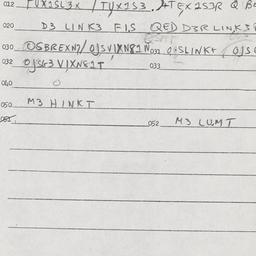 012 TUX1SL3X / TUX1S3. ATEX1S3R Q B
020 D3 LINK3 FIS QED D3R LINK3
030 OSBREXN7/ OJSVIXN81N 031 O+SLINK+ OJS
032 OJSG3 VIXN81T 033
040 O
050 M3 HINKT
051. 052 M3 LUMT